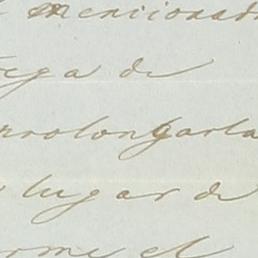 mencionad
ega de
prolongarla
lugar de
orme el